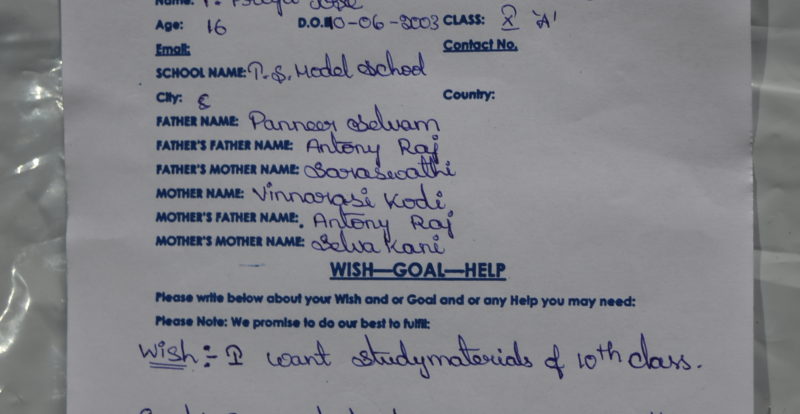 Name: P.
Age: 16 D.O.B 10-06-2003 CLASS: X 'A'
Email: Contact No.
SCHOOL NAME: T.S. Model School
City: Country:
FATHER NAME: Panneer Selvam
FATHER'S FATHER NAME: Antony Raj
FATHER'S MOTHER NAME: Saraswathi
MOTHER NAME: Vinnarasi Kodi
MOTHER'S FATHER NAME: Antony Raj
MOTHER'S MOTHER NAME: Selva Kani
WISH—GOAL—HELP
Please write below about your Wish and or Goal and or any Help you may need:
Please Note: We promise to do our best to fulfill:
Wish :- I want studymaterials of 10th class.